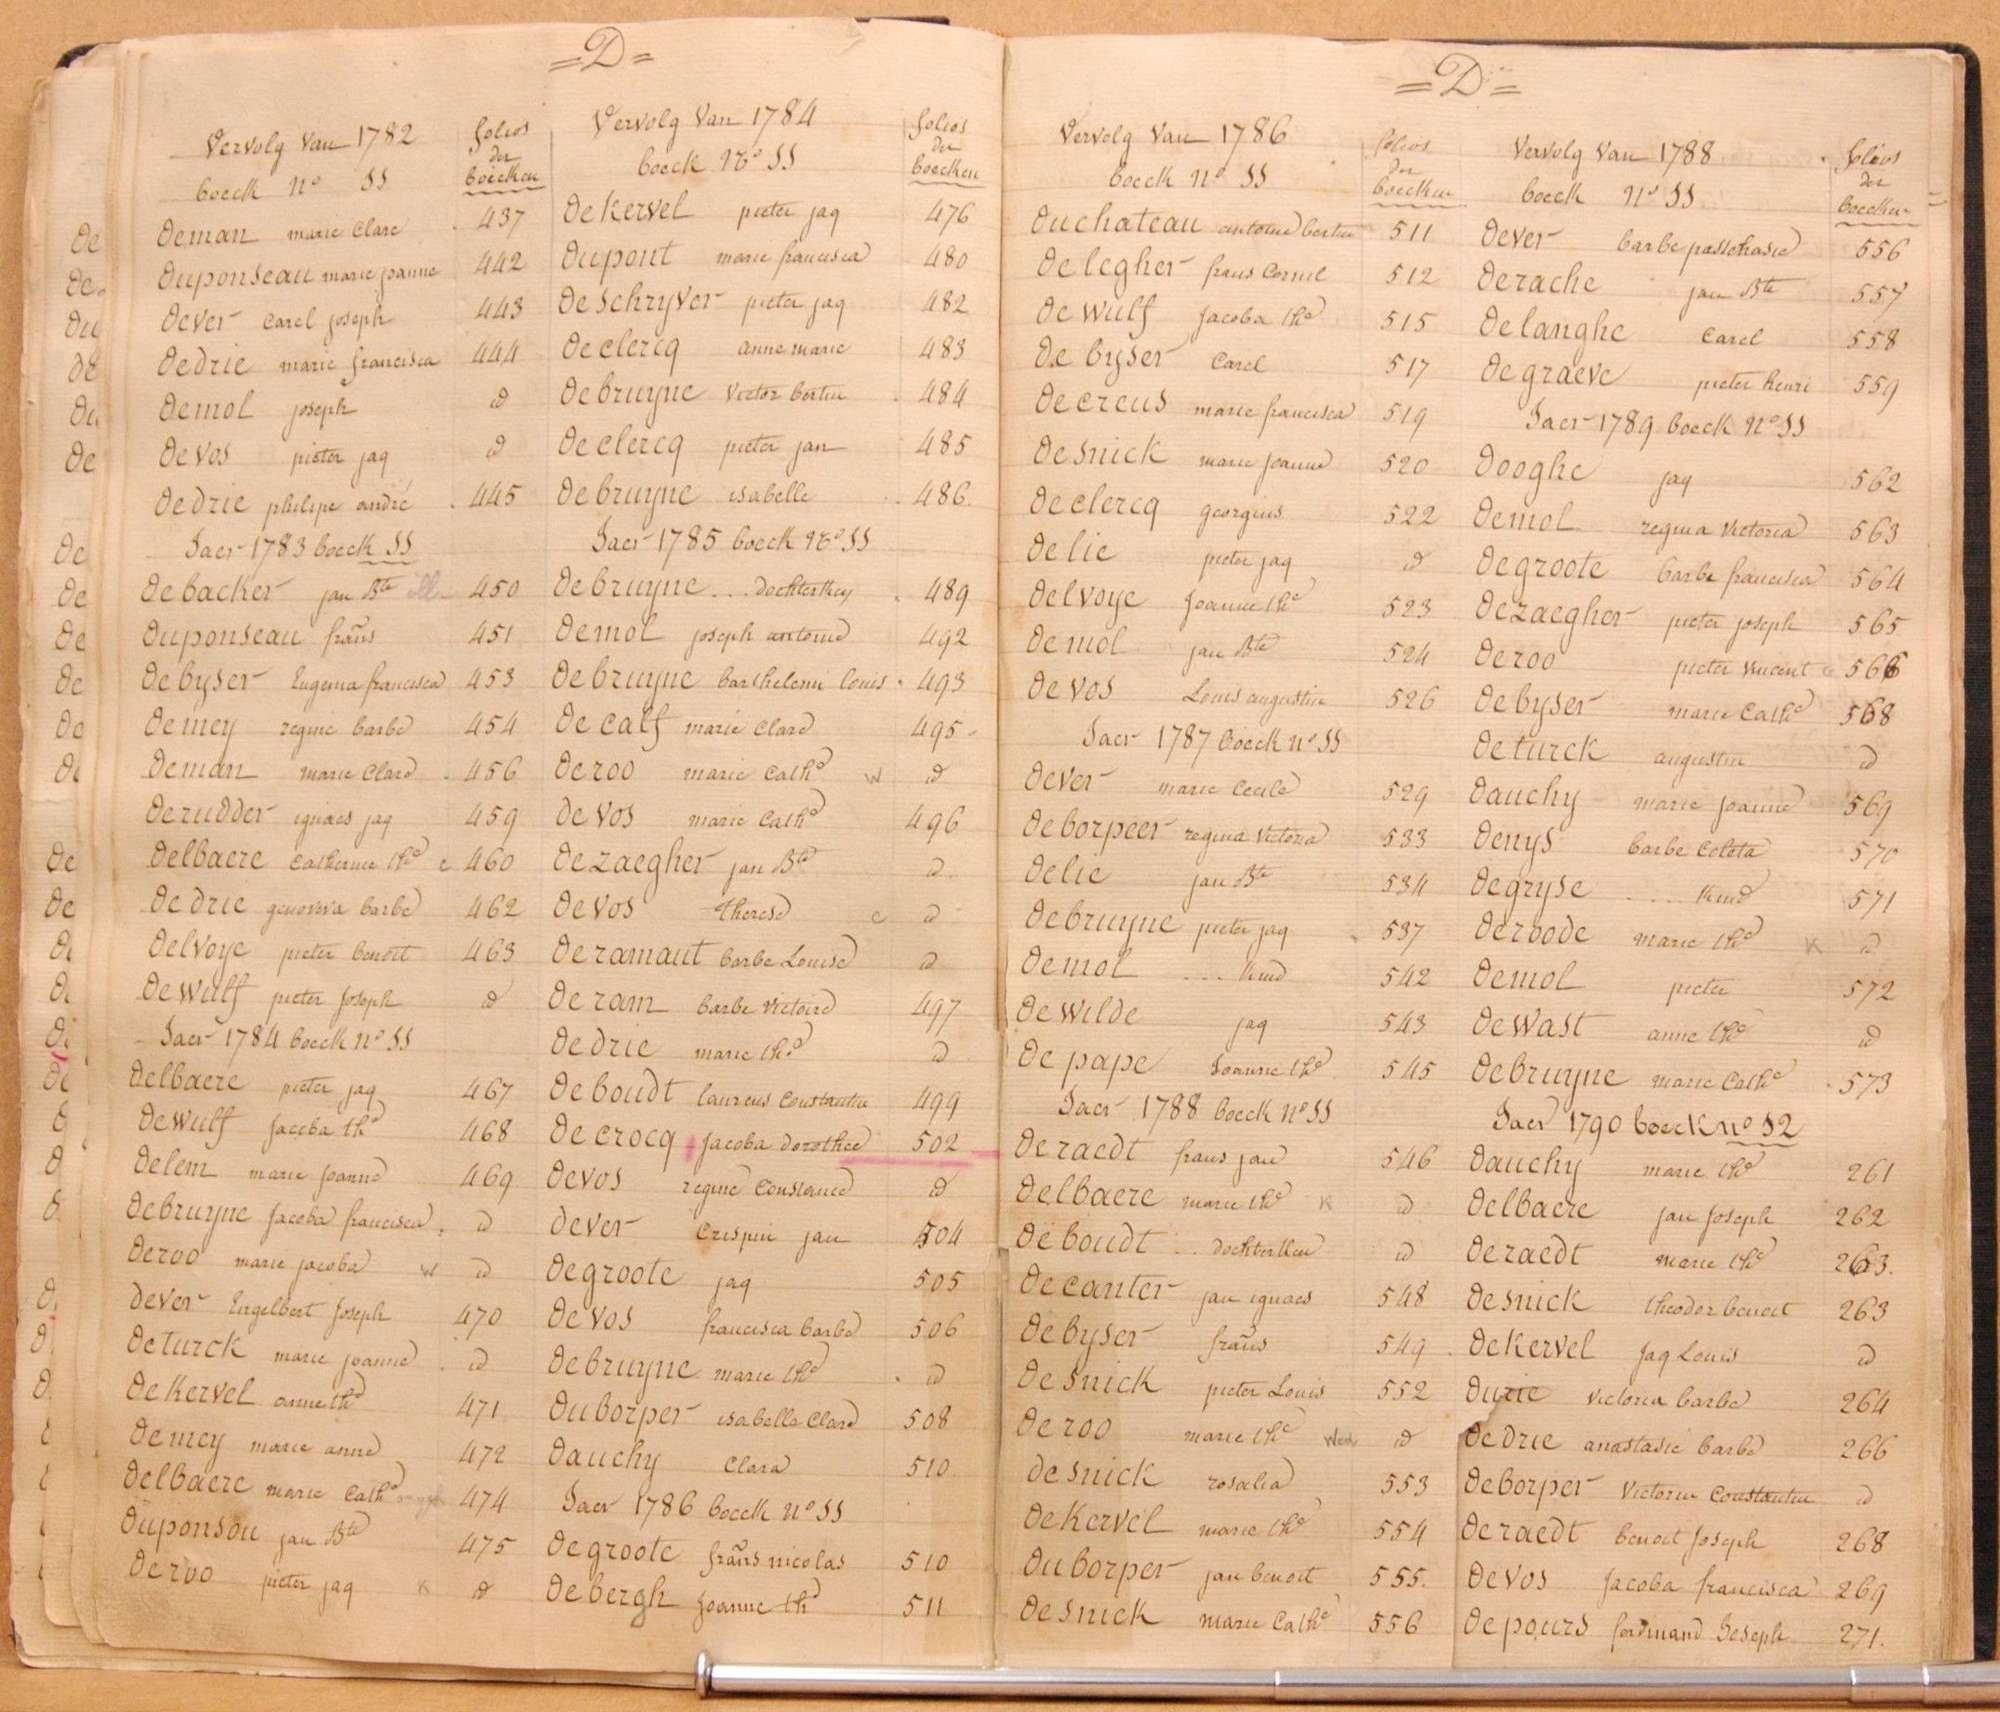 =D=
Vervolg Van 1782
folios
der
boecken
boeck No SS
Deman marie Clare 437
Duponseau marie joanne 442
Dever Carel joseph 443
Dedrie marie francisca 444
Demol joseph id
Devos pieter jaq id
Dedrie philipe andré 445
Jaer 1783 boeck SS
Debacker jan Bte 450
Duponseau frans 451
Debyser Eugenia francisca 453
Demey regine barbe 454
Deman marie Clare 456
Derudder ignaes jaq 459
Delbaere Catherine the c 460
Dedrie genoveva barbe 462
Delvoye pieter benoit 463
Dewulf pieter Joseph id
Jaer 1784 boeck no SS
Delbaere pieter jaq 467
Dewulf Jacoba the 468
Delem marie Joanne 469
Debruyne Jacoba francisca id
Deroo marie jacoba w id
Dever Engelbert Joseph 470
Deturck marie joanne id
Dekervel anne the 471
Demey marie anne 472
Delbaere marie Cathe 474
Duponsou jan Bte 475
Deroo pieter jaq K id
Vervolg Van 1784
folios
der
boecken
boeck No SS
Dekervel pieter jaq 476
Dupont marie francisca 480
Deschryver pieter jaq 482
Declercq anne marie 483
Debruyne Victor bertin 484
Declercq pieter jan 485
Debruyne isabelle 486
Jaer 1785 boeck No SS
Debruyne ... dochterken 489
Demol joseph antoine 492
Debruyne barthelemi louis 493
Decalf marie Clare 495
Deroo marie Cathe w id
Devos marie Cathe 496
Dezaegher jan Bte id
Devos therese c id
Deramaut barbe Louise id
Deram barbe Victoire 497
Dedrie marie the id
Deboudt laureus Constantin 499
Decrocq Jacoba dorothee 502
Devos regine Constance id
Dever Crispin jan 504
Degroote jaq 505
Devos francisca barbe 506
Debruyne marie the id
Duborper isabelle Clare 508
Dauchy Clara 510
Jaer 1786 boeck no SS
Degroote frans nicolas 510
Debergh Joanne the 511
=D=
Vervolg Van 1786
folios
der
boecken
boeck No SS
Duchateau antoine bertin 511
Delegher frans Cornil 512
Dewulf Jacoba the 515
Debyser Carel 517
Decreus marie francisca 519
Desnick marie Joanne 520
Declercq georgius 522
Delie pieter jaq id
Delvoye Joanne the 523
Demol jan Bte 524
Devos Louis augustin 526
Jaer 1787 boeck no SS
Dever marie Cecile 529
Deborpeer regina Victoria 533
Delie jan Bte 534
Debruyne pieter jaq 537
Demol ... kind 542
Dewilde jaq 543
Depape Joanne the 545
Jaer 1788 boeck no SS
Deraedt frans jan 546
Delbaere marie the K id
Deboudt ... dochterken id
Decanter jan ignaes 548
Debyser frans 549
Desnick pieter Louis 552
Deroo marie the id
Desnick rosalia 553
Dekervel marie the 554
Duborper jan benoit 555
Desnick marie Cathe 556
Vervolg Van 1788
folios
der
boecken
boeck No SS
Dever barbe paschasie 556
Derache jan Bte 557
Delanghe Carel 558
Degraeve pieter henri 559
Jaer 1789 boeck No SS
Dooghe jaq 562
Demol regina Victoria 563
Degroote barbe francisca 564
Dezaegher pieter joseph 565
Deroo pieter Vincent 566
Debyser marie Cathe 568
Deturck augustin id
Dauchy marie Joanne 569
Denys barbe Coleta 570
Degryse .... kind 571
Deroode marie the K id
Demol pieter 572
Dewast anne the id
Debruyne marie Cathe 573
Jaer 1790 boeck no 52
Dauchy marie the 261
Delbaere jan Joseph 262
Deraedt marie the 263
Desnick theodor benoit 263
Dekervel Jaq Louis id
Durie Victoria barbe 264
Dedrie anastasie barbe 266
Deborper Victorin Constantin id
Deraedt benoit Joseph 268
Devos Jacoba francisca 269
Depours ferdinand Joseph 271